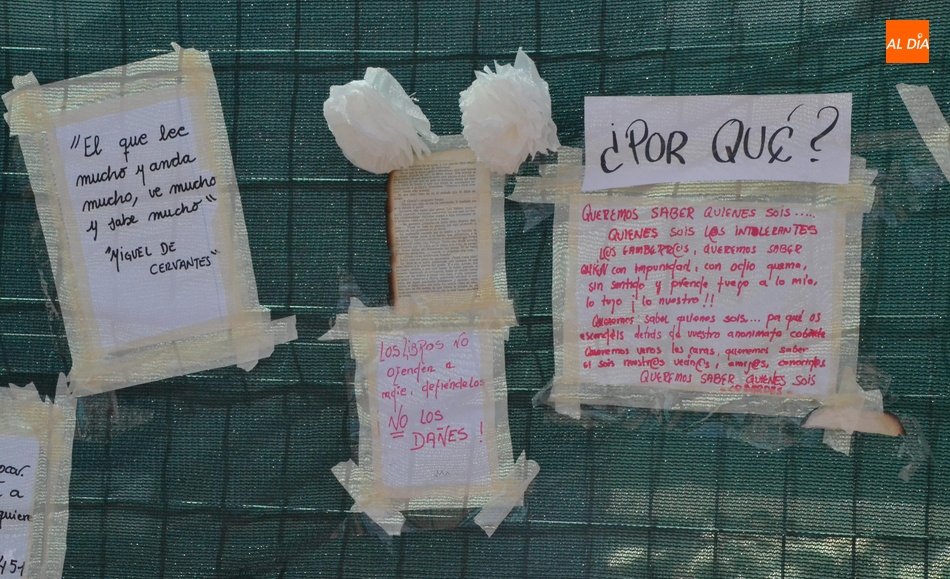 AL DÍA
"El que lee
mucho y anda
mucho, ve mucho
y sabe mucho"
"MIGUEL DE
CERVANTES"
LOS LIBROS NO
ofenden a
nadie, defiéndelos
NO LOS
DAÑES !
¿POR QUÉ?
QUEREMOS SABER QUIENES SOIS....
QUIENES SOIS L@S INTOLERANTES
L@S GAMBERR@S, QUEREMOS SABER
QUIÉN con impunidad, con odio quema,
sin sentido y prende fuego a lo mío,
lo tuyo ¡ lo nuestro !!
Queremos saber quienes sois.... pa qué os
escondéis detrás de vuestro anonimato cobarde
Queremos veros las caras, queremos saber
si sois nuestr@s vecin@s, amig@s, conocid@s
QUEREMOS SABER QUIENES SOIS
COBARDES
a
quien
451